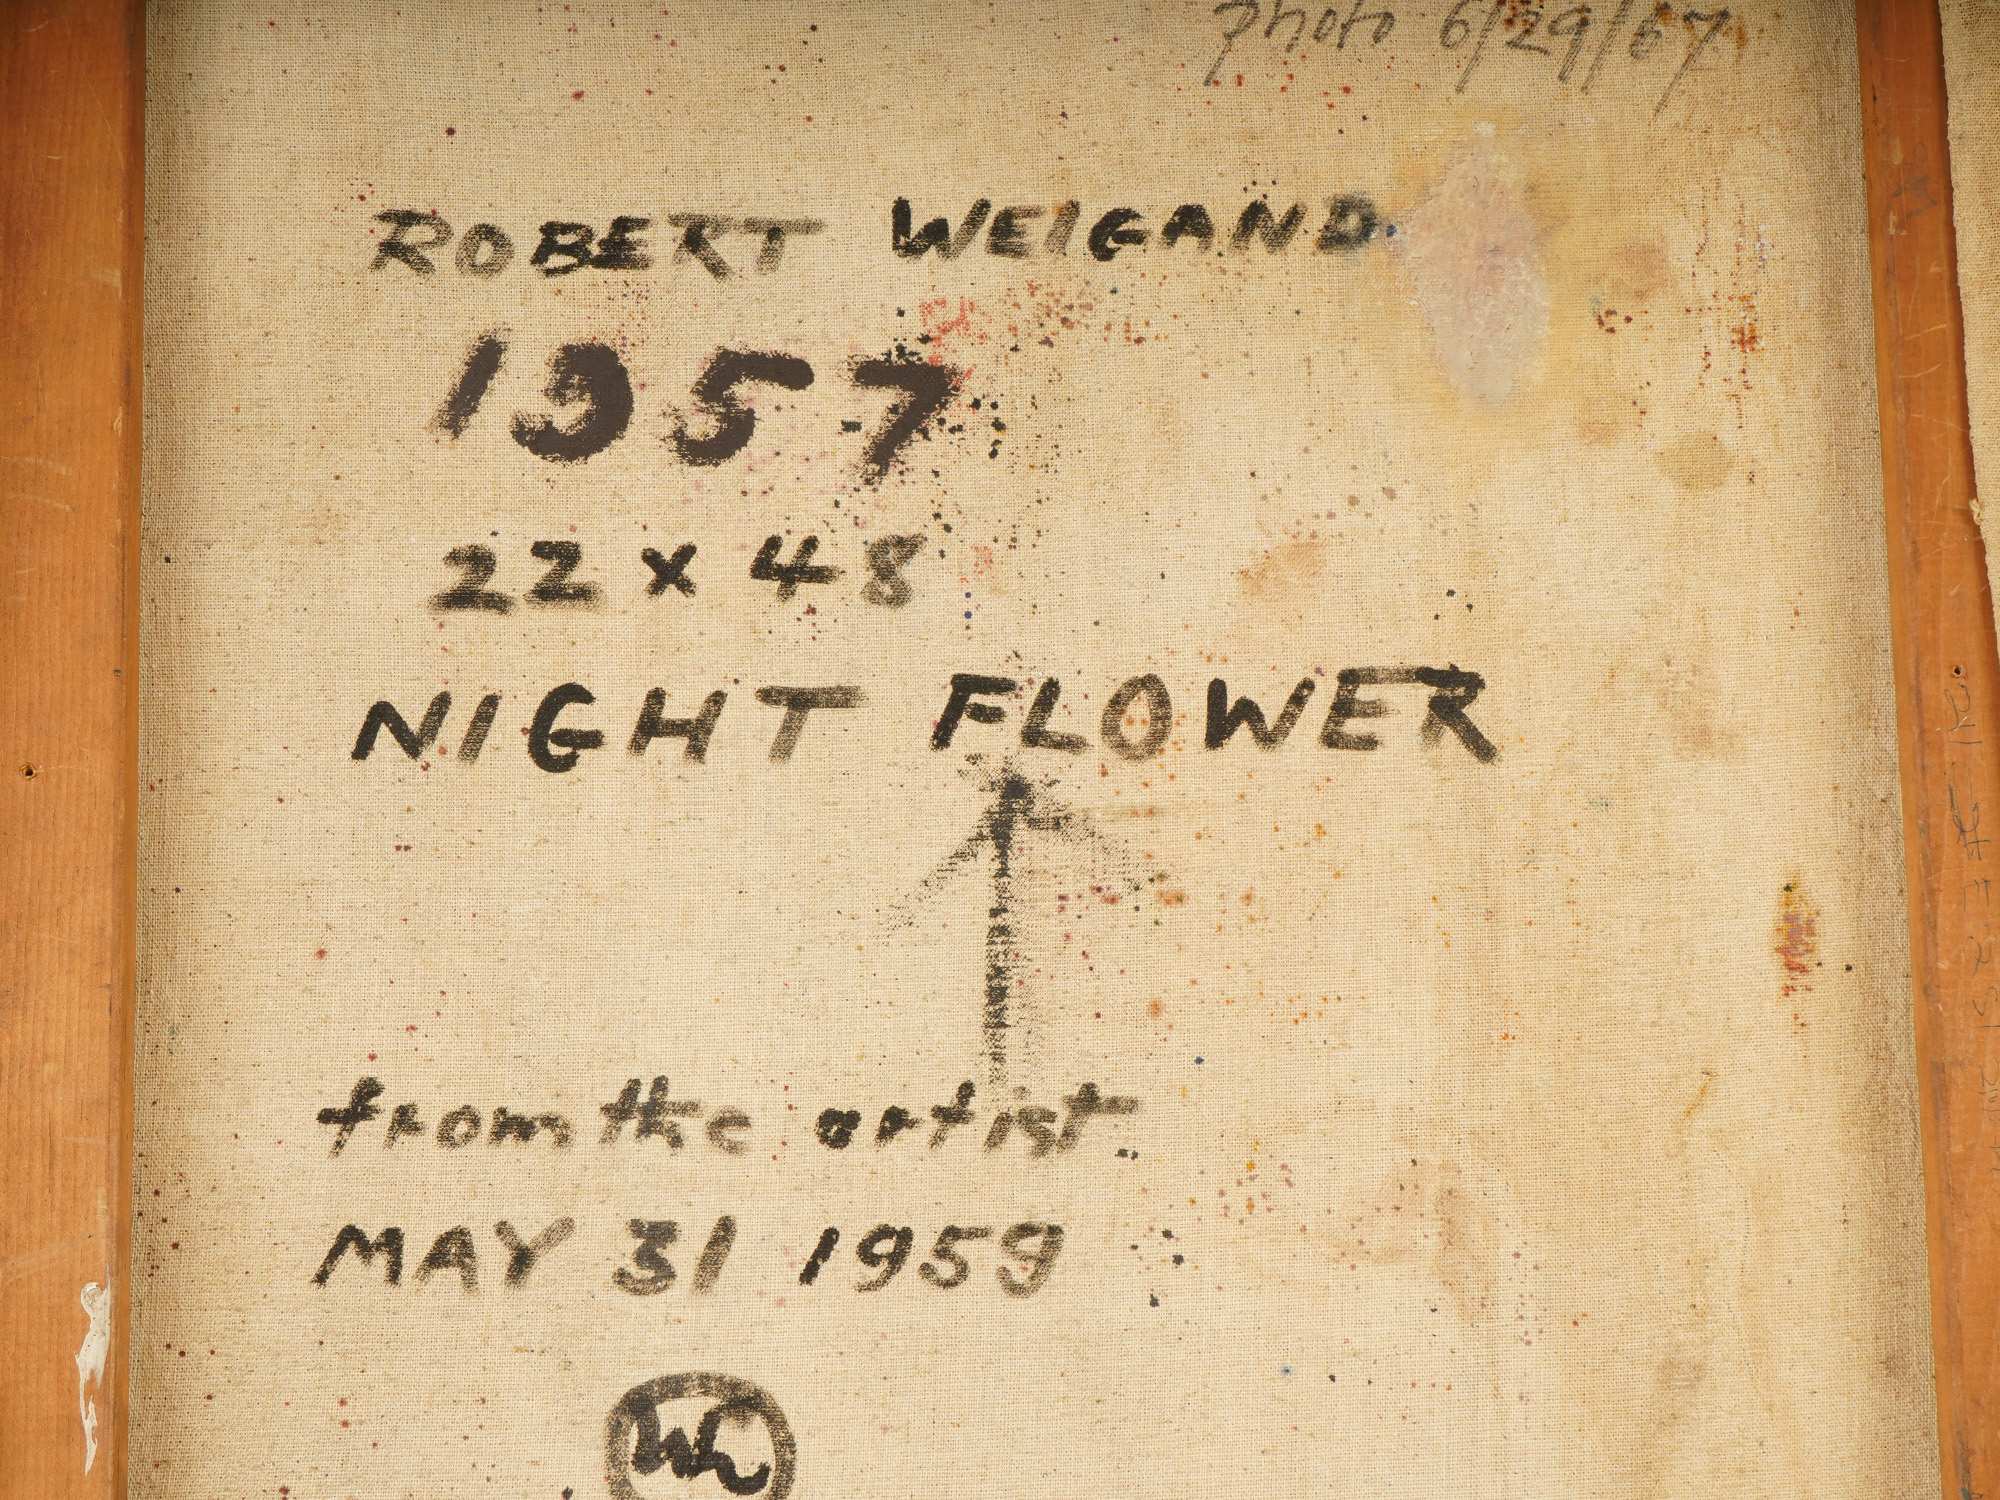 photo 6/29/67
ROBERT WEIGAND
1957
22 x 48
NIGHT FLOWER
from the artist
MAY 31 1959